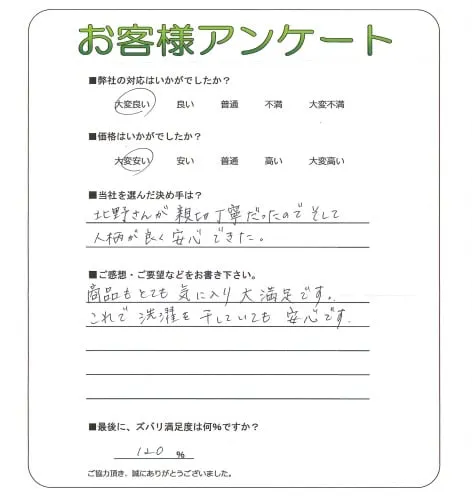 お客様アンケート
■弊社の対応はいかがでしたか？
大変良い 良い 普通 不満 大変不満
■価格はいかがでしたか？
大変安い 安い 普通 高い 大変高い
■当社を選んだ決め手は？
北野さんが 親切丁寧だったので そして
人柄が良く安心できた。
■ご感想・ご要望などをお書き下さい。
商品もとても 気に入り 大満足です。
これで 洗濯を 干していても 安心です.
■最後に、ズバリ満足度は何％ですか？
120 ％
ご協力頂き、誠にありがとうございました。